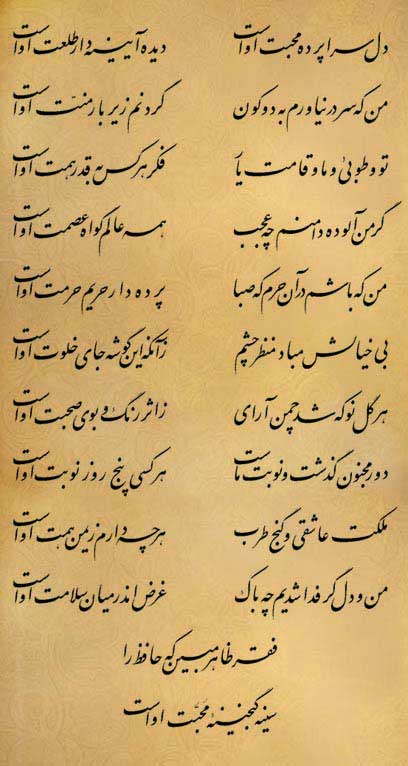 دل سراپرده محبت اوست دیده آیینه دار طلعت اوست
من که سر در نیاورم به دو کون گردنم زیر بار منت اوست
تو و طوبی و ما و قامت یار فکر هر کس به قدر همت اوست
گر من آلوده دامنم چه عجب همه عالم گواه عصمت اوست
من که باشم در آن حرم که صبا پرده دار حریم حرمت اوست
بی خیالش مباد منظر چشم زآنکه این گوشه جای خلوت اوست
هر گل نو که شد چمن آرای ز اثر رنگ و بوی صحبت اوست
دور مجنون گذشت و نوبت ماست هر کسی پنج روز نوبت اوست
ملکت عاشقی و گنج طرب هر چه دارم ز یمن همت اوست
من و دل گر فدا شدیم چه باک غرض اندر میان سلامت اوست
فقر ظاهر مبین که حافظ را
سینه گنجینه محبت اوست